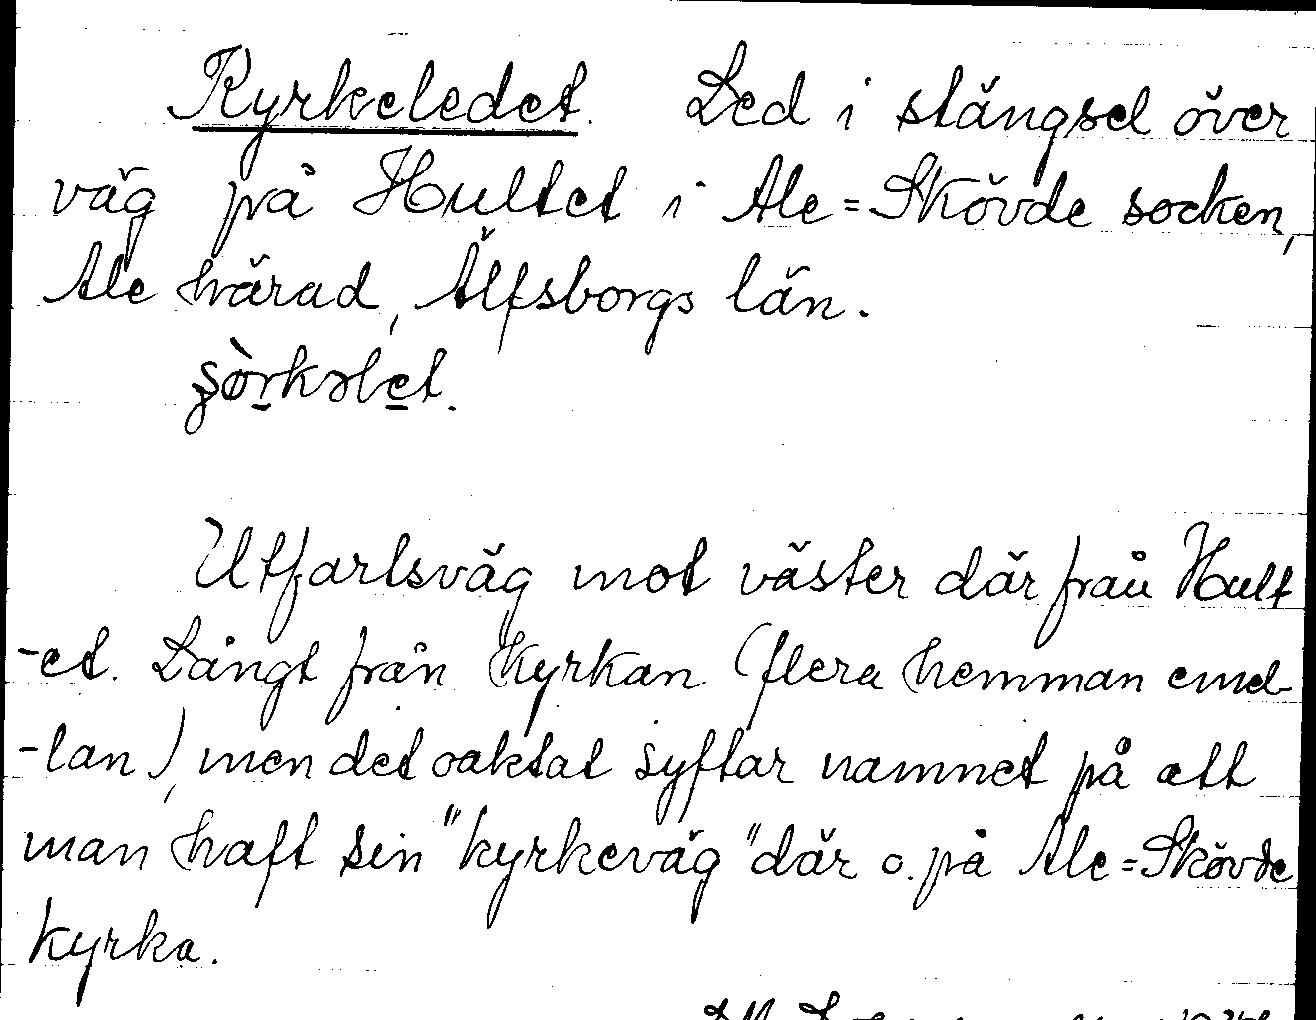 Kyrkeledet. Led i stängsel över
väg på Hultet i Ale=Skövde socken,
Ale härad, Älfsborgs län.
şòrkəlet.
Utfartsväg mot väster där från Hult
-et. Långt från kyrkan (flera hemman emel-
-lan), men det oaktat syftar namnet på att
man haft sin "kyrkeväg" där o. på Ale=Skövde
kyrka.